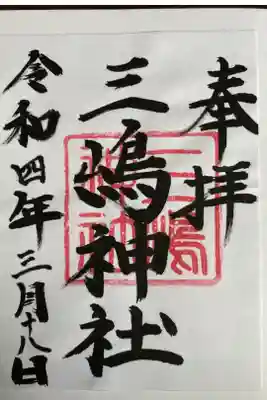 奉拝
三嶋神社
令和四年三月十八日